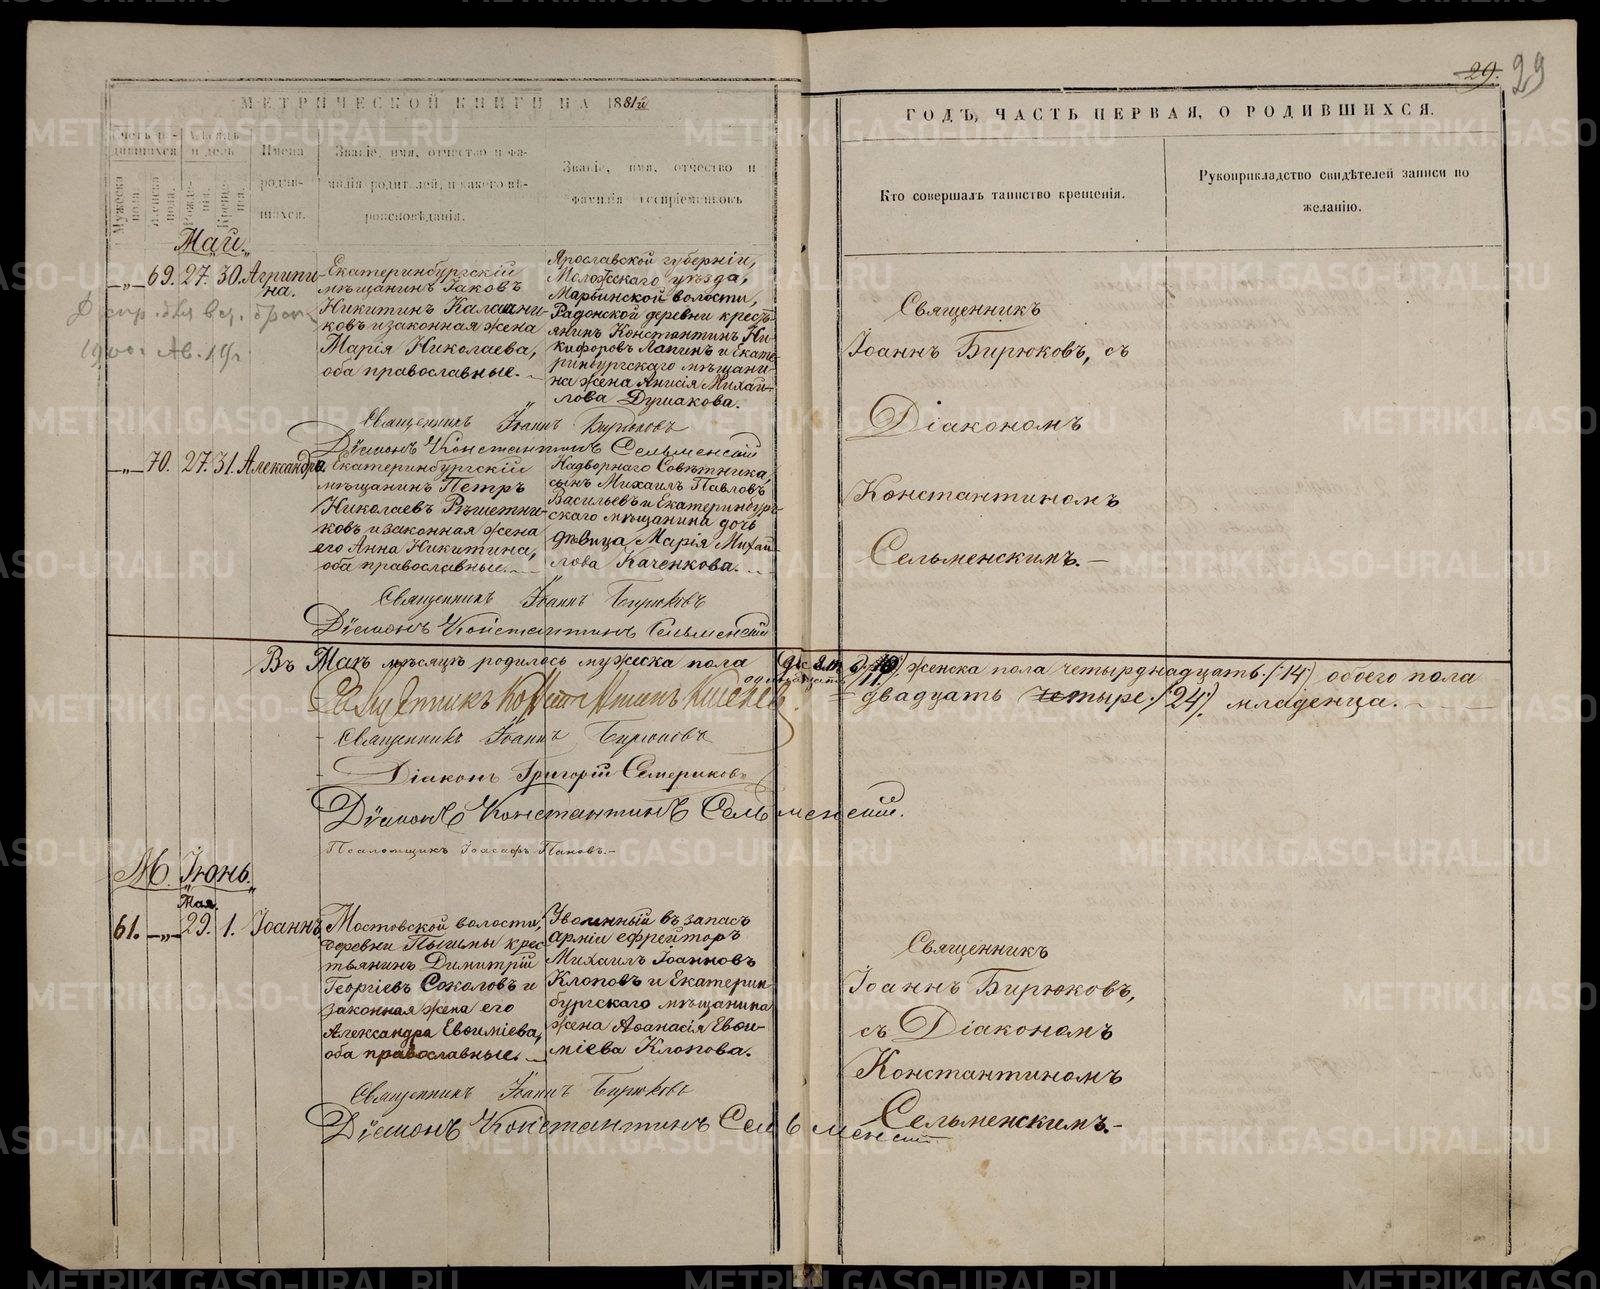 29. 29
МЕТРИЧЕСКОЙ КНИГИ НА 1881й
ГОДЪ, ЧАСТЬ ПЕРВАЯ, О РОДИВШИХСЯ.
Мужеска пола.
Женска пола.
Имена родив-
шихся.
Званіе, имя, отчество и фа-
милія родителей, и какого вѣ-
роисповѣданія.
Званіе, имя, отчество и
фамилія воспріемниковъ
Кто совершалъ таинство крещенія.
Рукоприкладство свидѣтелей записи по
желанію.
Май.
„ 69. 27. 30. Агрипи-
на.
Екатеринбургскій
мѣщанинъ Іаковъ
Никитинъ Калашни-
ковъ и законная жена
Марія Николаева,
оба православные.
Ярославской губерніи,
Моложскаго уѣзда,
Марьинской волости,
Радонской деревни кресть-
янинъ Константинъ Ни-
кифоровъ Лапинъ и Екате-
ринбургскаго мѣщани-
на жена Анисія Михай-
лова Душакова.
Священникъ
Іоаннъ Бирюковъ, съ
Діакономъ
Константиномъ
Сельменскимъ.
Священникъ Іоаннъ Бирюковъ
Діаконъ Константинъ Сельменскій
„ 70. 27. 31. Александра
Екатеринбургскій
мѣщанинъ Петръ
Николаевъ Рѣшетни-
ковъ и законная жена
его Анна Никитина,
оба православные.
Надворнаго Совѣтника,
сынъ Михаилъ Павловъ
Васильевъ и Екатеринбург-
скаго мѣщанина дочь
дѣвица Марія Михай-
лова Каченкова.
Священникъ Іоаннъ Бирюковъ
Діаконъ Константинъ Сельменскій
Въ Маѣ мѣсяцѣ родилось мужеска пола женска пола четырнадцать /:14:/ обоего пола
двадцать четыре /:24:/ младенца.
Священникъ Константинъ
Священникъ Іоаннъ Бирюковъ
Діаконъ Григорій Семериковъ
Діаконъ Константинъ Сельменскій.
Псаломщикъ Іоасафъ Пановъ.
М. Іюнь.
Мая.
61. „ 29. 1. Іоаннъ
Мостовской волости,
деревни Пышмы крес-
тьянинъ Димитрій
Георгіевъ Соколовъ и
законная жена его
Александра Евѳиміева,
оба православные.
Уволенный въ запасъ
арміи ефрейторъ
Михаилъ Іоанновъ
Клоповъ и Екатерин-
бургскаго мѣщанина
жена Аѳанасія Евѳи-
міева Клопова.
Священникъ
Іоаннъ Бирюковъ,
съ Діакономъ
Константиномъ
Сельменскимъ.
Священникъ Іоаннъ Бирюковъ
Діаконъ Константинъ Сельменскій
METRIKI.GASO-URAL.RU